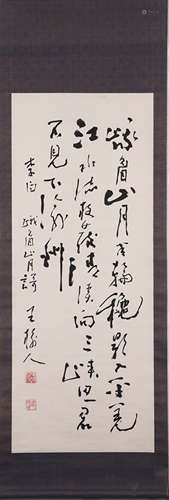 峨眉山月半輪穐影入平羌
江水流夜發清溪向三峽思君
不見下渝州
李白 峨眉山月歌 王